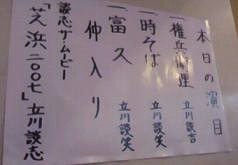 本日の演目
権兵衛狸 立川談吉
一時そば 立川談笑
一富久 立川談笑
仲入り
談志ザ・ムービー
「芝浜二〇〇七」立川談志